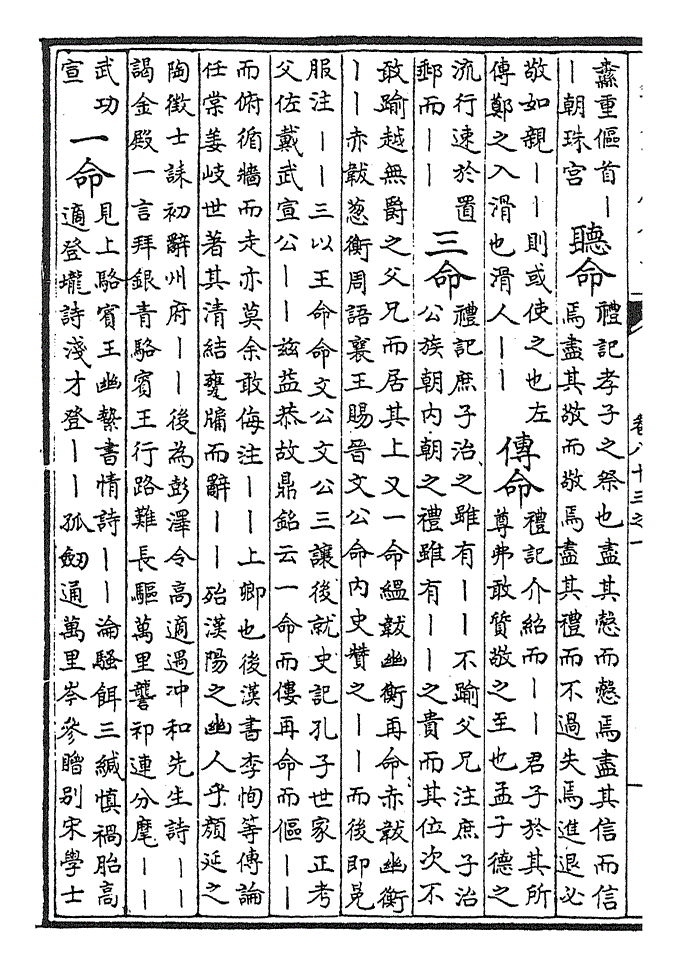 纛重傴首｜
｜朝珠宮
聽命
禮記孝子之祭也盡其慤而慤焉盡其信而信
焉盡其敬而敬焉盡其禮而不過失焉進退必
敬如親｜｜則或使之也左
傳鄭之入滑也滑人｜｜
傳命
禮記介紹而｜｜君子於其所
尊弗敢質敬之至也孟子德之
流行速於置
郵而｜｜
三命
禮記庶子治之雖有｜｜不踰父兄注庶子治
公族朝内朝之禮雖有｜｜之貴而其位次不
敢踰越無爵之父兄而居其上又一命縕韍幽衡再命赤韍幽衡
｜｜赤韍葱衡周語襄王賜晉文公命内史賛之｜｜而後即冕
服注｜｜三以王命命文公文公三讓後就史記孔子世家正考
父佐戴武宣公｜｜兹益恭故鼎銘云一命而僂再命而傴｜｜
而俯循牆而走亦莫余敢侮注｜｜上卿也後漢書李恂等傳論
任棠姜岐世著其清結甕牖而辭｜｜殆漢陽之幽人乎顔延之
陶徵士誄初辭州府｜｜後為彭澤令高適遇冲和先生詩｜｜
謁金殿一言拜銀青駱賓王行路難長驅萬里讋祁連分麾｜｜
武功
宣
一命
見上駱賓王幽縶書情詩｜｜淪驕餌三緘慎禍胎高
適登壠詩淺才登｜｜孤劒通萬里岑參贈别宋學士
卷八十三之一